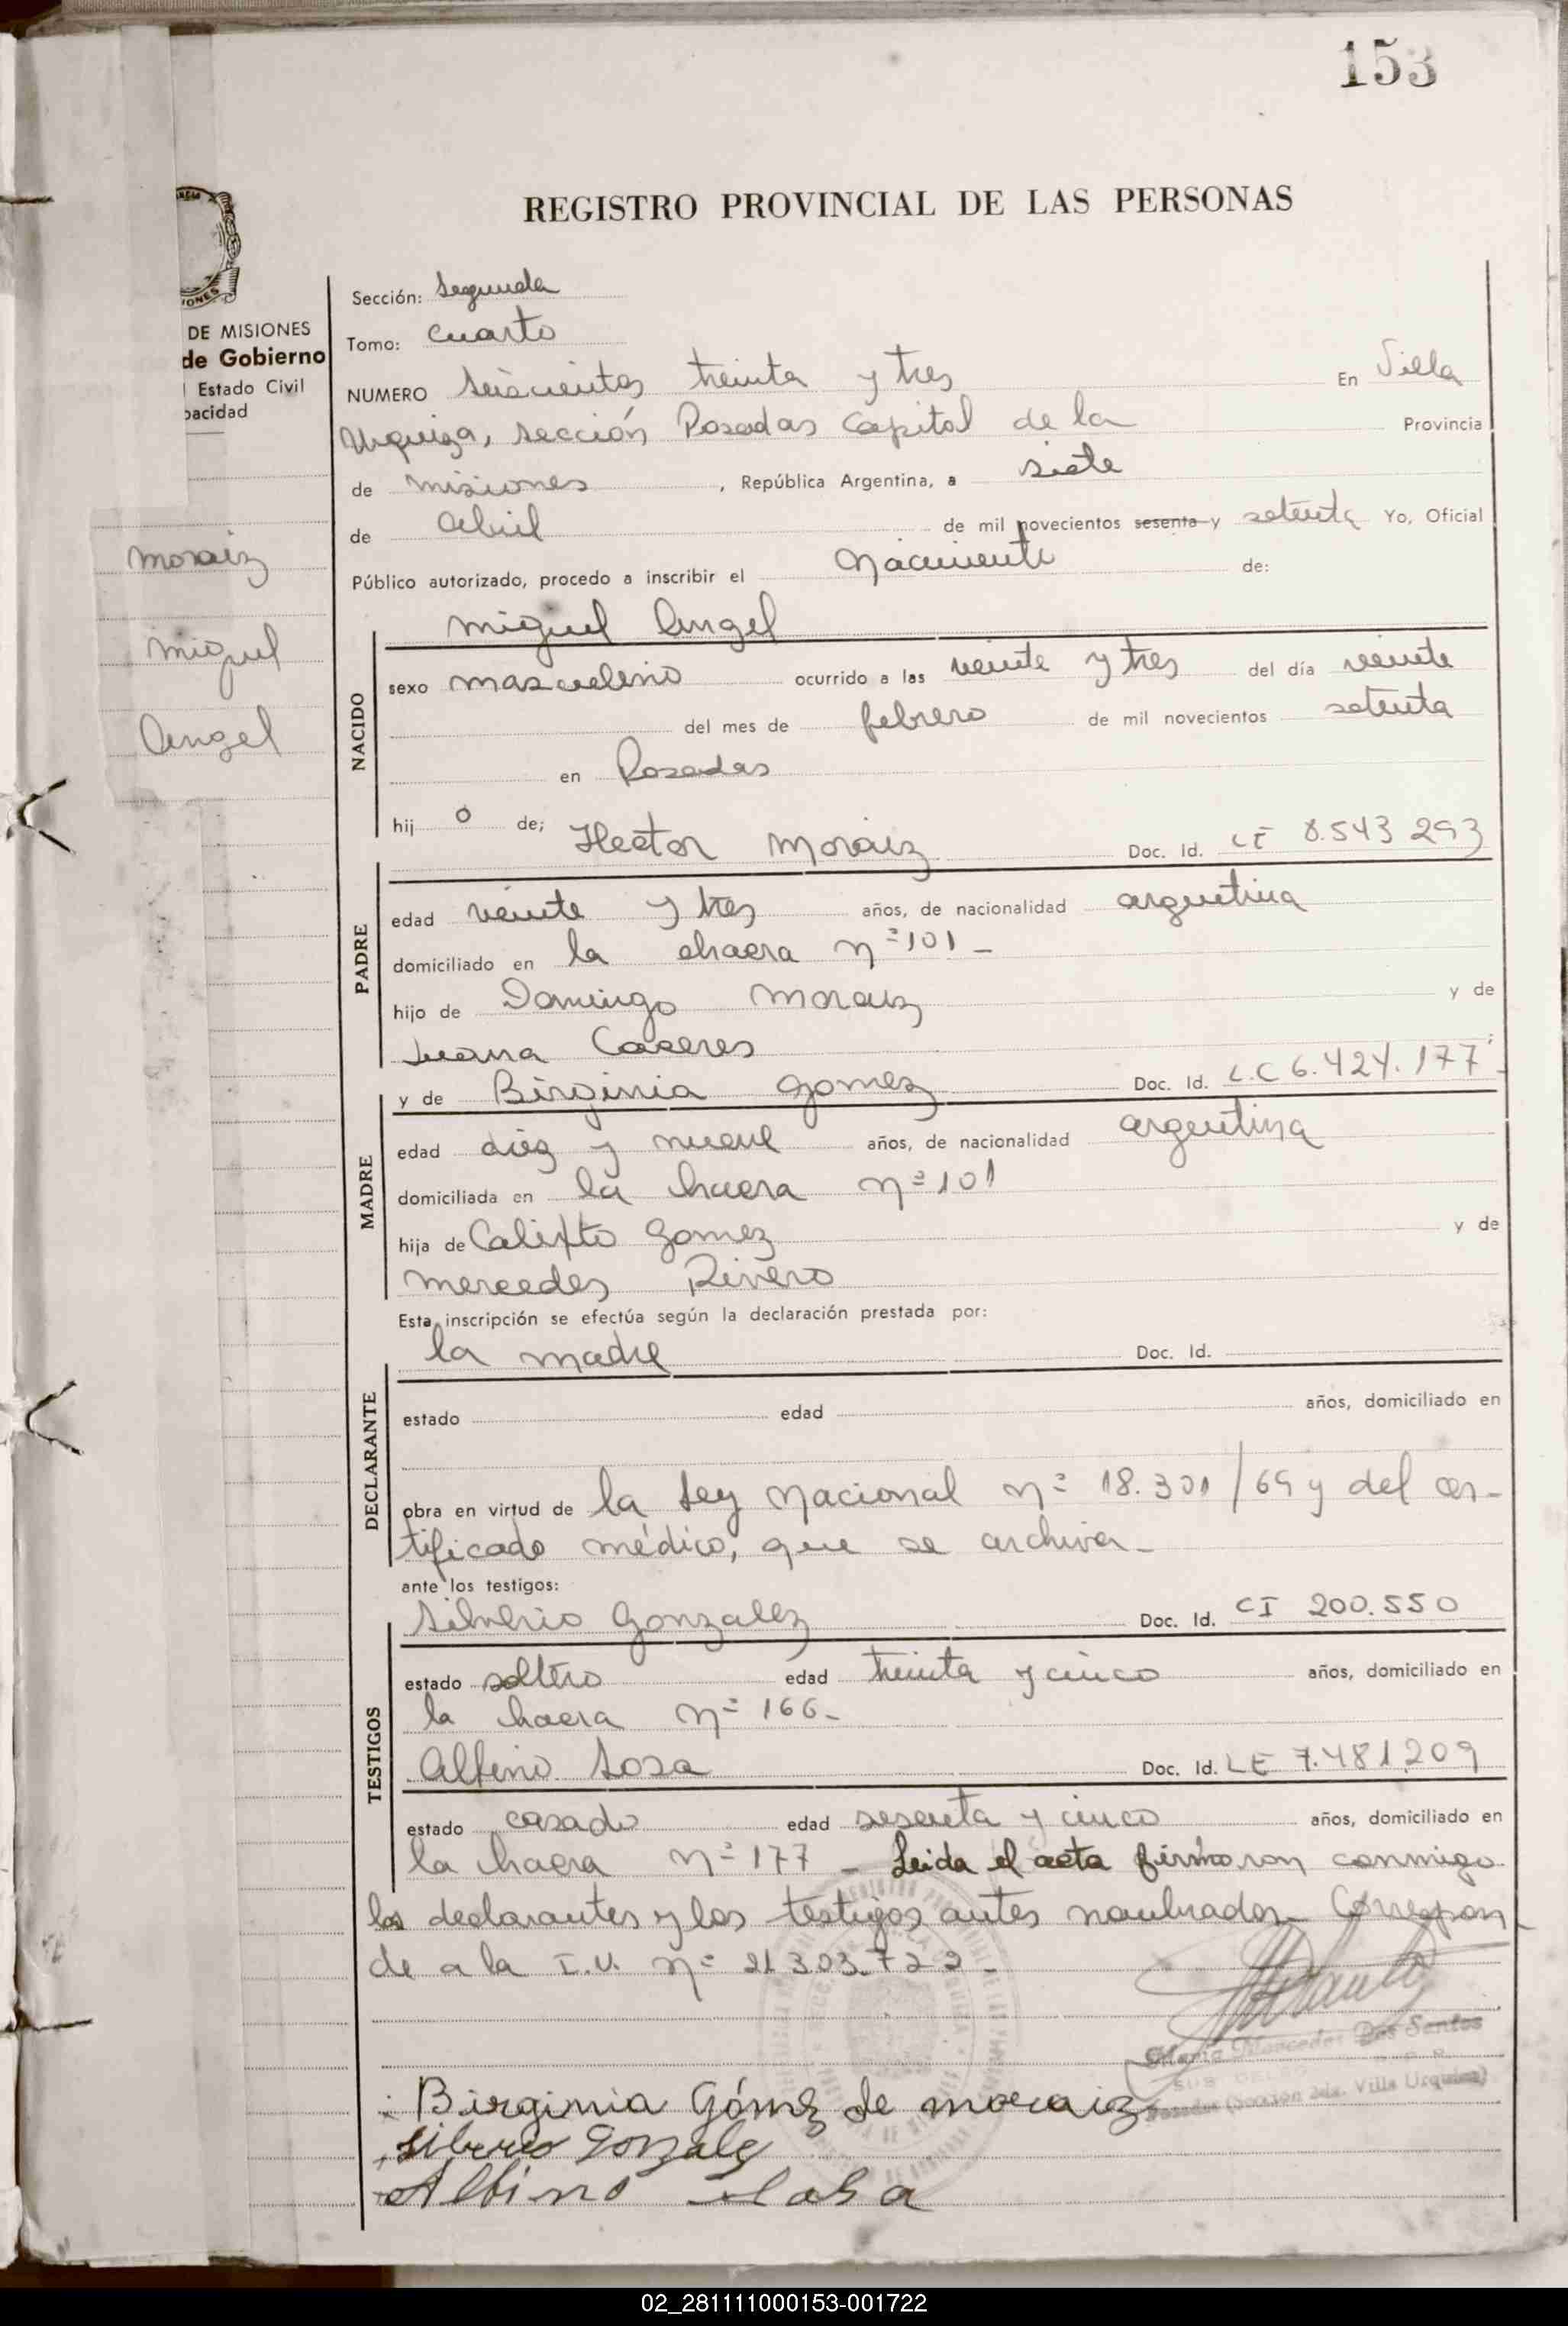 153
REGISTRO PROVINCIAL DE LAS PERSONAS
DE MISIONES
de Gobierno
Estado Civil
pacidad
moraiz
miguel
Angel
Sección: Segunda
Tomo: cuarto
NUMERO Seiscientos treinta y tres En Villa
Urquiza, sección Posadas Capital de la Provincia
de misiones, República Argentina, a siete
de abril de mil novecientos sesenta y setenta Yo, Oficial
Público autorizado, procedo a inscribir el nacimiento de:
miguel Angel
NACIDO
sexo masculino ocurrido a las veinte y tres del día veinte
del mes de febrero de mil novecientos setenta
en Posadas
hij o de; Hector moraiz Doc. Id. LE 8.543 293
PADRE
edad veinte y tres años, de nacionalidad argentina
domiciliado en la chacra nº 101 -
hijo de Domingo moraiz y de
Juana Caseres
y de Birginia gomez Doc. Id. L.C 6.424.177
MADRE
edad diez y nueve años, de nacionalidad argentina
domiciliada en la chacra nº 101
hija de Calixto gomez y de
mercedes Rivero
Esta inscripción se efectúa según la declaración prestada por:
la madre Doc. Id.
DECLARANTE
estado edad años, domiciliado en
obra en virtud de la Ley nacional nº 18.301/69 y del cer-
tificado médico, que se archiva -
ante los testigos:
TESTIGOS
Silverio gonzalez Doc. Id. CI 200.550
estado soltero edad treinta y cinco años, domiciliado en
la chacra nº 166 -
Albino Sosa Doc. Id. LE 7.481.209
estado casado edad sesenta y cinco años, domiciliado en
la chacra nº 177 - Leida el acta firmaron conmigo
los declarantes y los testigos antes nombrados - Correspon
de a la I.U. nº 21.303.722 -
Maria Mercedes Dos Santos
Posadas (Sección 2da. Villa Urquiza)
Birginia Gómez de moraiz
Silverio Gonzalez
Albino Sosa
02_281111000153-001722